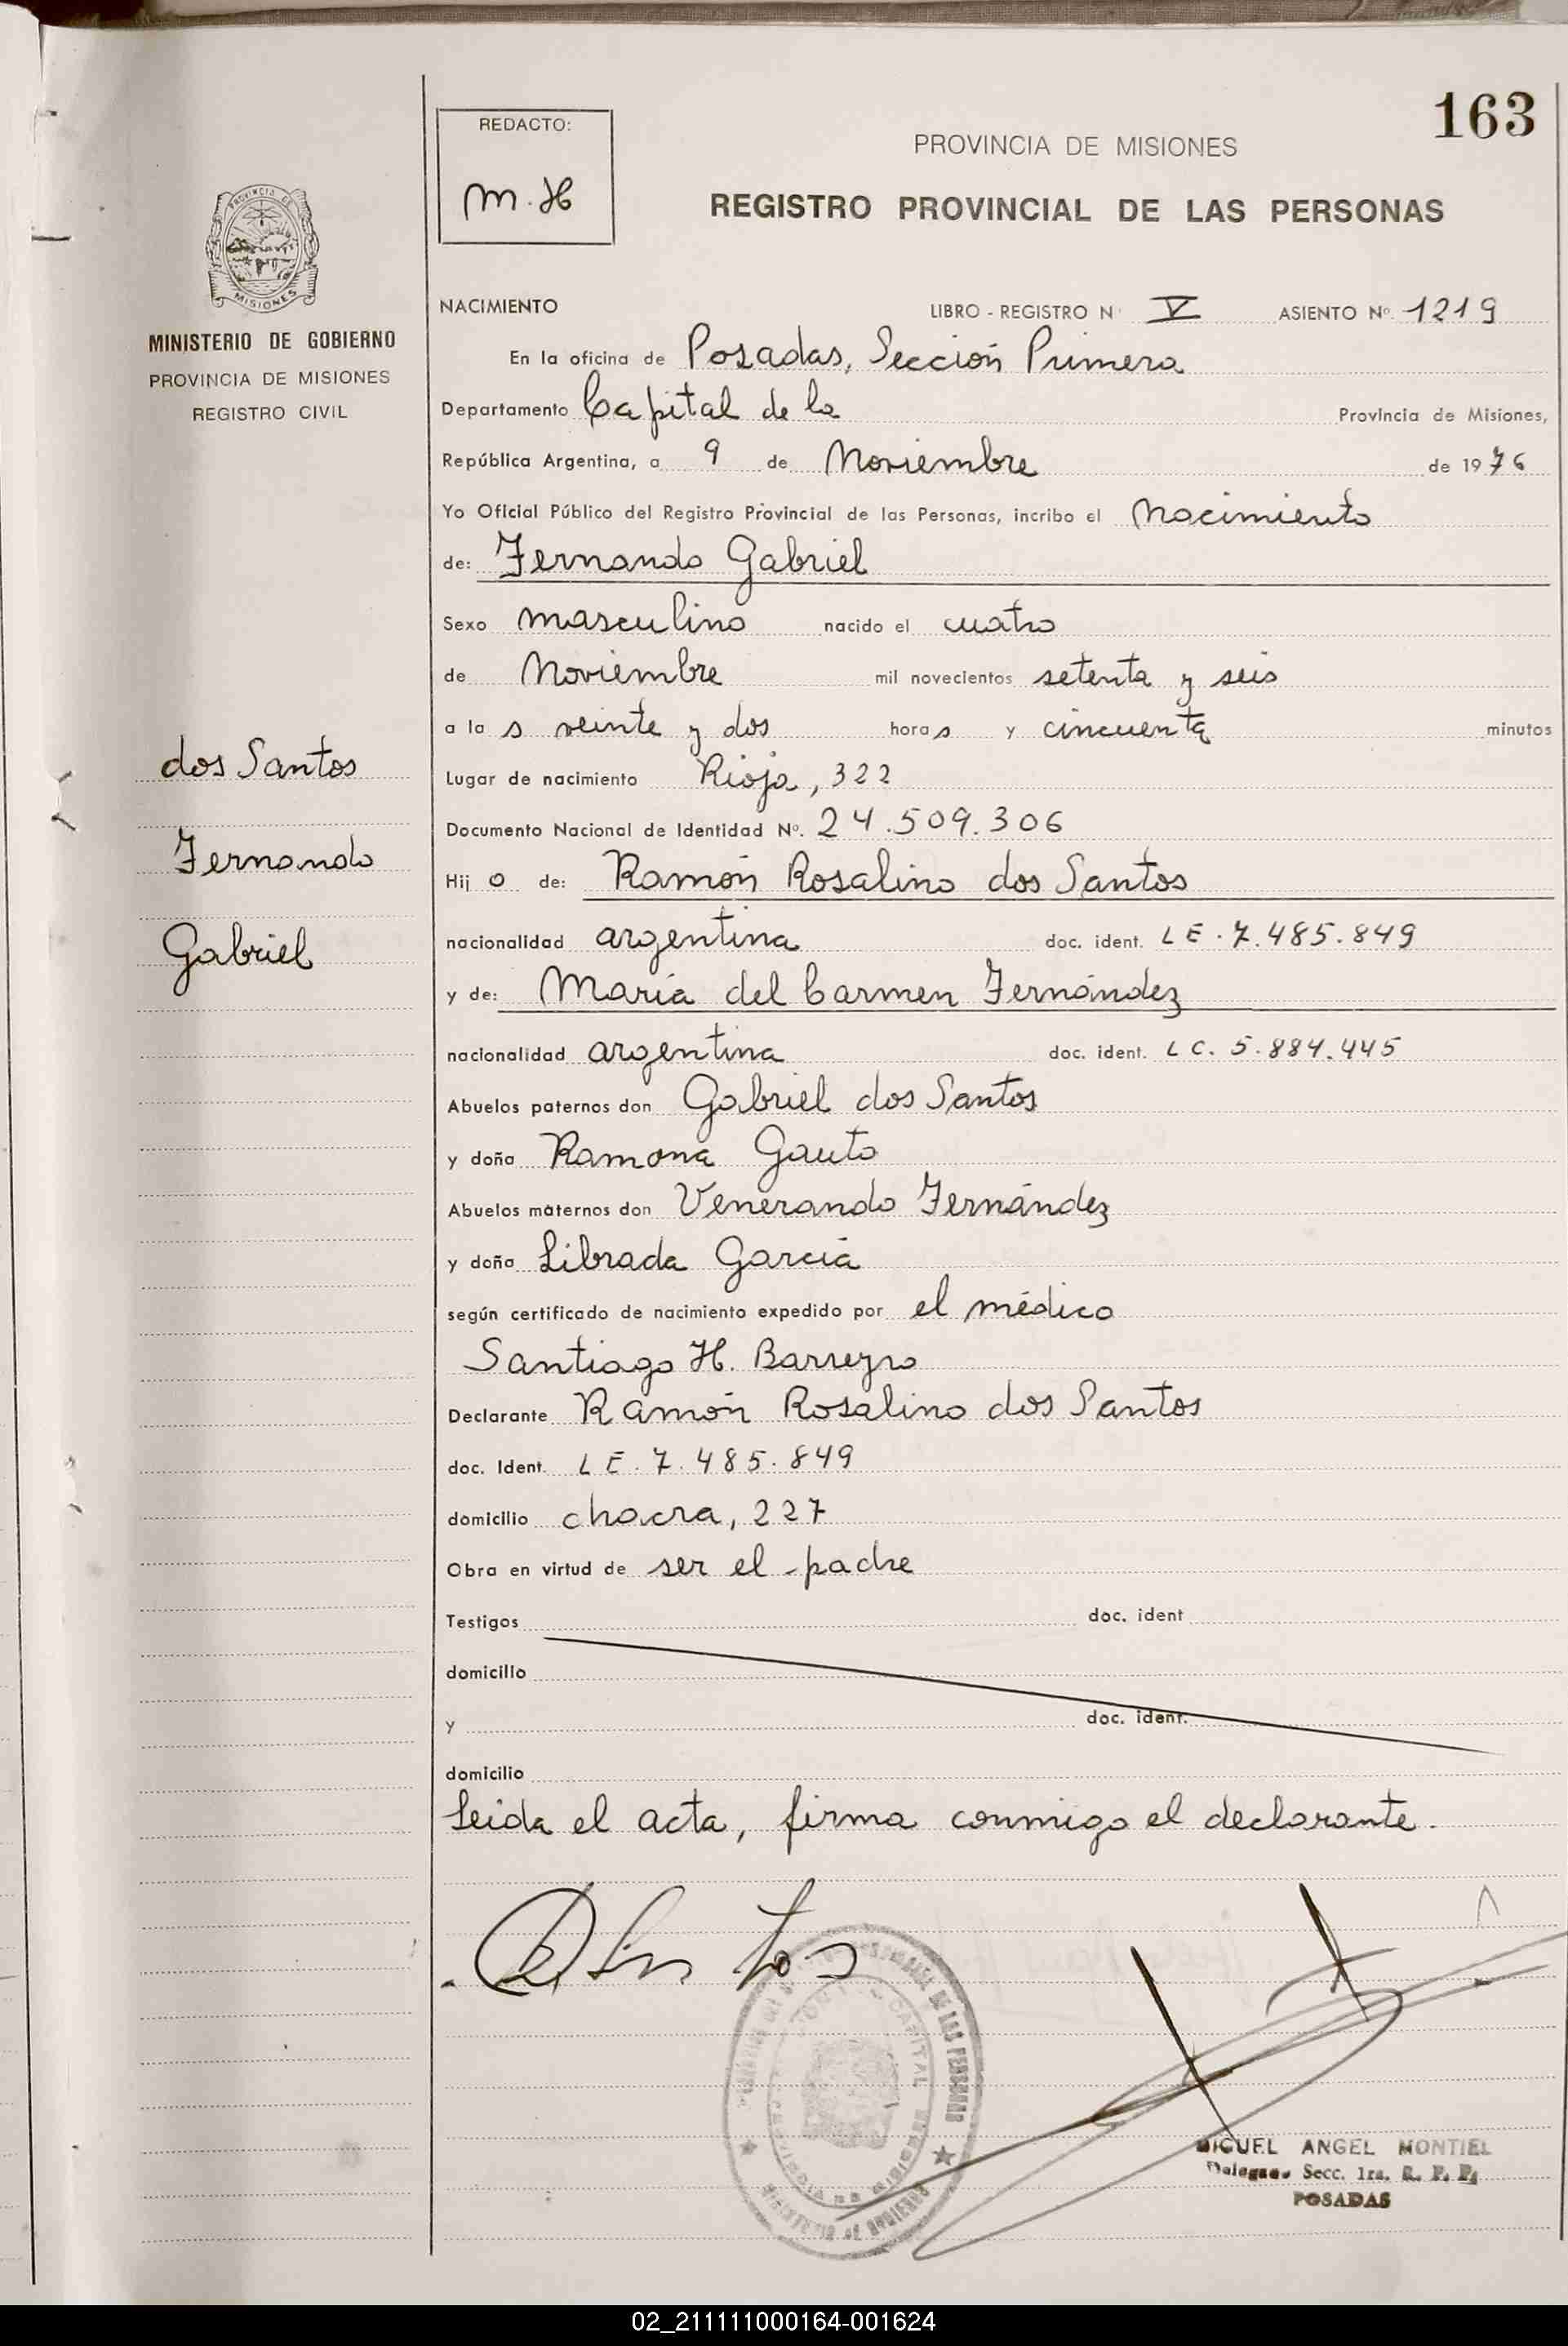 163
REDACTO:
M. H
PROVINCIA DE MISIONES
REGISTRO PROVINCIAL DE LAS PERSONAS
PROVINCIA DE
MISIONES
MINISTERIO DE GOBIERNO
PROVINCIA DE MISIONES
REGISTRO CIVIL
dos Santos
Fernando
Gabriel
NACIMIENTO LIBRO - REGISTRO Nº V ASIENTO Nº 1219
En la oficina de Posadas, Sección Primera
Departamento Capital de la Provincia de Misiones,
República Argentina, a 9 de Noviembre de 1976
Yo Oficial Público del Registro Provincial de las Personas, incribo el Nacimiento
de: Fernando Gabriel
Sexo masculino nacido el cuatro
de Noviembre mil novecientos setenta y seis
a la s veinte y dos horas y cincuenta minutos
Lugar de nacimiento Rioja, 322
Documento Nacional de Identidad Nº. 24.509.306
Hij o de: Ramón Rosalino dos Santos
nacionalidad argentina doc. ident. LE. 7.485.849
y de: María del Carmen Fernández
nacionalidad argentina doc. ident. LC. 5.884.445
Abuelos paternos don Gabriel dos Santos
y doña Ramona Gauto
Abuelos maternos don Venerando Fernández
y doña Librada García
según certificado de nacimiento expedido por el médico
Santiago H. Barreyro
Declarante Ramón Rosalino dos Santos
doc. Ident. LE. 7.485.849
domicilio chacra, 227
Obra en virtud de ser el padre
Testigos doc. ident
domicilio
y doc. ident.
domicilio
Leida el acta, firma conmigo el declarante.
MIGUEL ANGEL MONTIEL
Delegado Secc. 1ra. R. P. P.
POSADAS
02_211111000164-001624